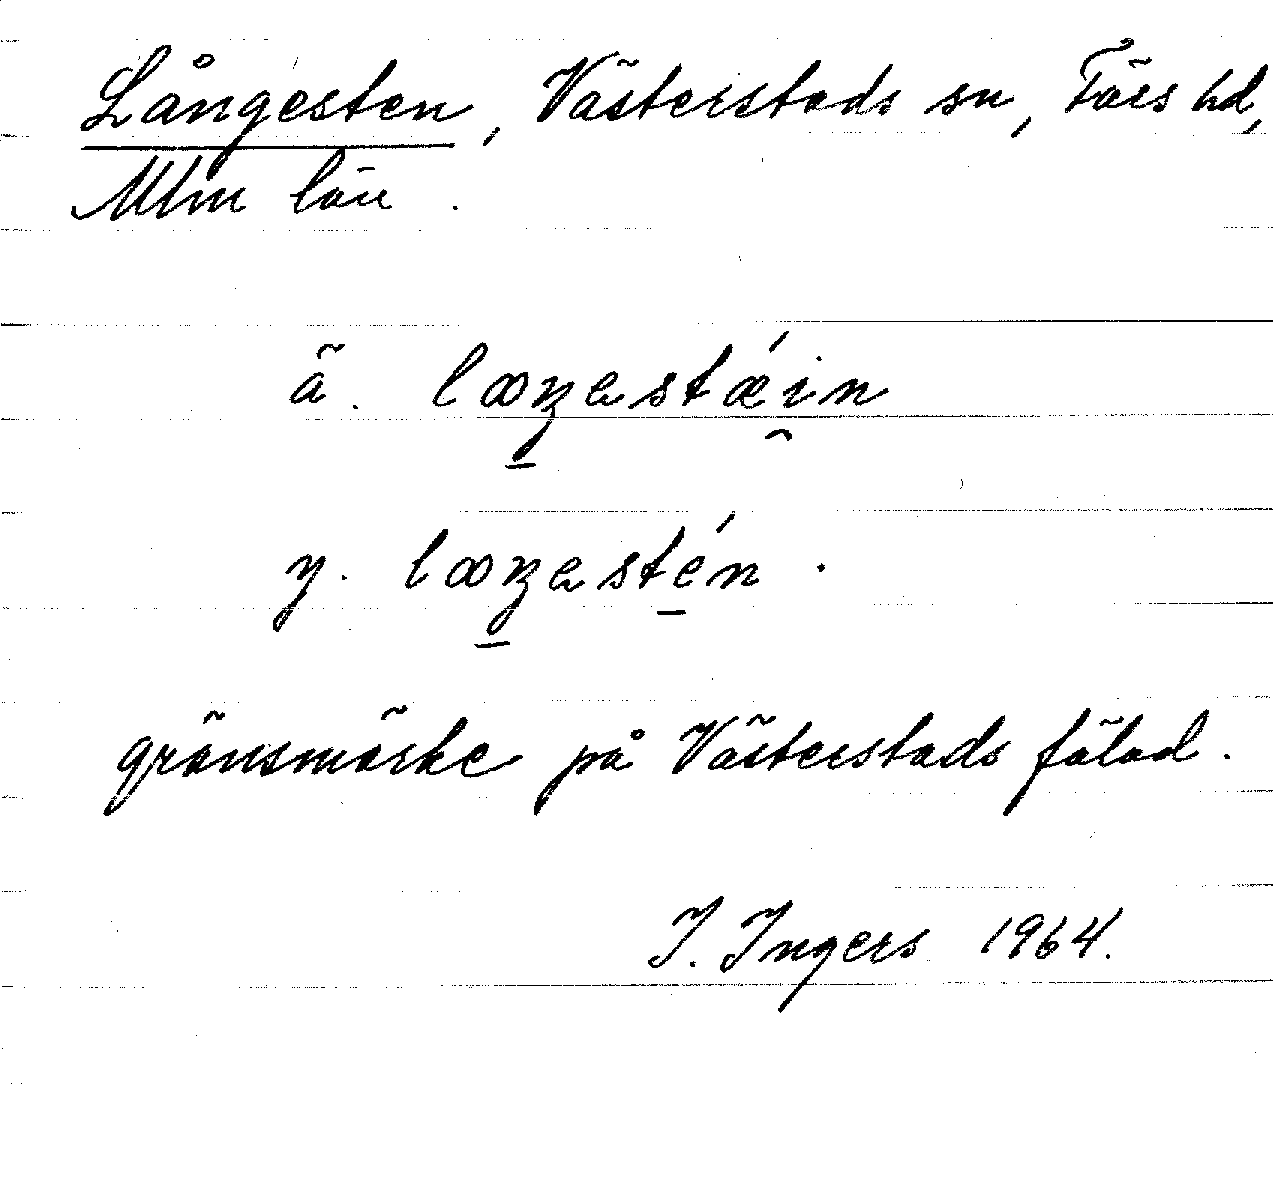 Långesten, Västerstads sn, Färs hd,
Mlm län.
ä. lꝏŋestǽi̯n
y. lꝏŋestén.
gränsmärke på Västerstads fälad.
I. Ingers 1964.